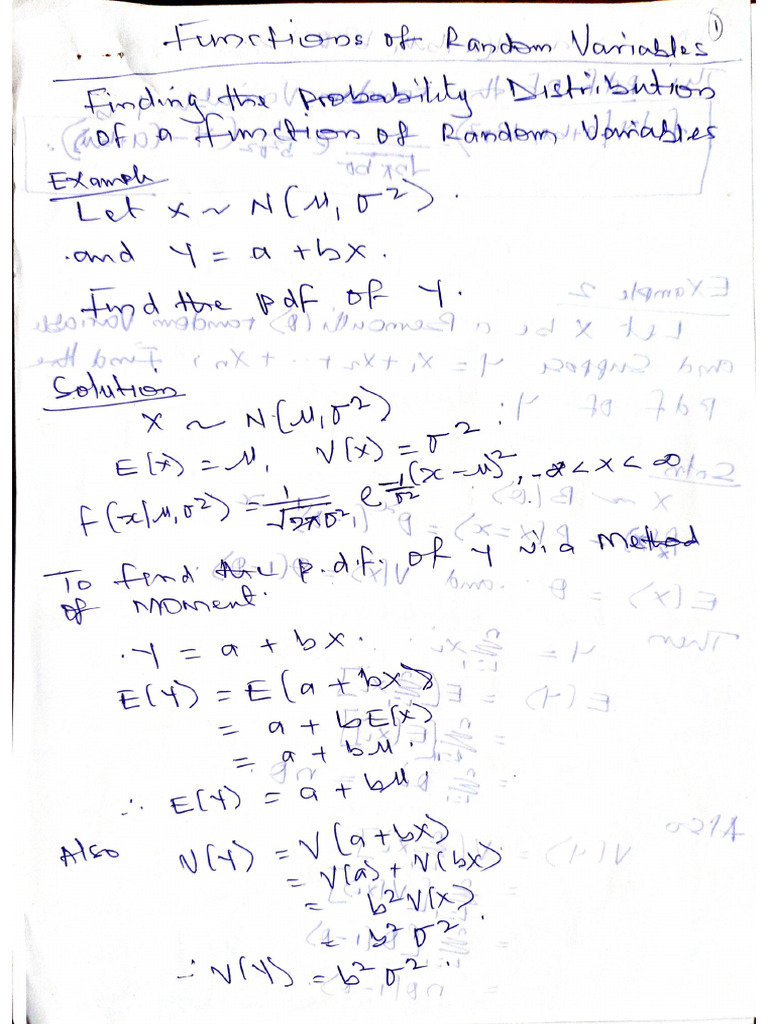 1
Functions of Random Variables
Finding the Probability Distribution
of a function of Random Variables
Example
Let x ~ N(μ, σ²).
and Y = a + bx.
Find the pdf of Y.
Solution
X ~ N(μ, σ²)
E(x) = μ, V(x) = σ²
f(x|μ, σ²) = 1/√2πσ² e^(-1/σ² (x-μ)²), -∞ < x < ∞
To find the p.d.f. of Y via Method
of Moment.
Y = a + bx.
E(Y) = E(a + bx)
= a + bE(x)
= a + bμ.
∴ E(Y) = a + bμ.
Also V(Y) = V(a + bx)
= V(a) + V(bx)
= b² V(x)
= b² σ².
∴ V(Y) = b² σ².